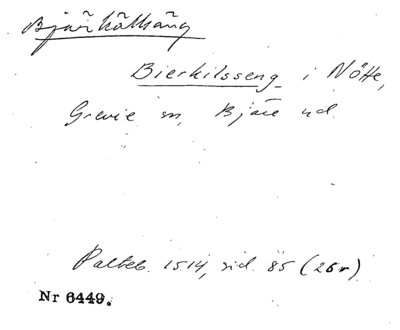 Bjärkölkäng
Bierkilsseng i Nötte,
Grevie sn, Bjäre hd.
Palteb. 1514, sid. 85 (26v)
Nr 6449.